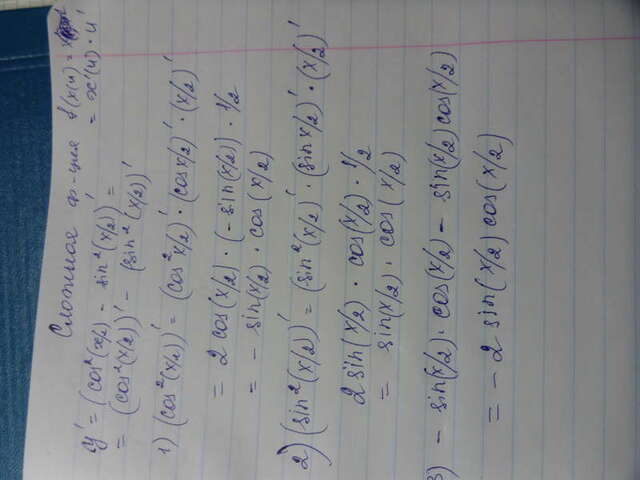 Сложная ф-ция f(x(u) = x
y' = (cos²(x/2) - sin²(x/2))' = = x'(u) · u'
= (cos²(x/2))' - (sin²(x/2))'
1) (cos²(x/2))' = (cos²x/2)' · (cosx/2)' · (x/2)'
= 2 cos(x/2) · (-sin(x/2)) · 1/2
= - sin(x/2) · cos(x/2)
2) (sin²(x/2))' = (sin²(x/2)' · (sinx/2)' · (x/2)'
2 sin(x/2) · cos(x/2) · 1/2
= sin(x/2) · cos(x/2)
3) - sin(x/2) · cos(x/2) - sin(x/2) cos(x/2)
= - 2 sin(x/2) cos(x/2)